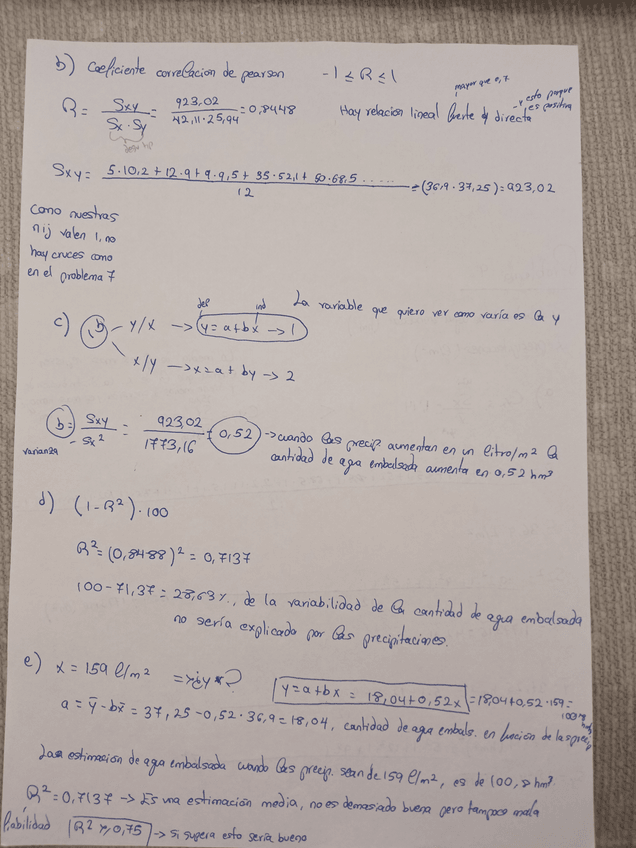 b) Coeficiente correlacion de pearson -1 ≤ R ≤ 1
R = Sxy / Sx · Sy = 923,02 / 42,11 · 25,94 = 0,8448 Hay relación lineal fuerte y directa
mayor que 0,7
→ esto porque es positiva
Sxy = 5·10,2 + 12·9 + 9·9,5 + 35·52,1 + 50·68,5 ...... / 12 - (36,9 · 37,25) = 923,02
Como nuestras
nij valen 1, no
hay cruces como
en el problema 7
dep ind La variable que quiero ver como varía es la y
c) b y/x → y = a + bx → 1
x/y → x = a + by → 2
b = Sxy / Sx² = 923,02 / 1773,16 = 0,52 → cuando las precip. aumentan en un litro/m² la
varianza cantidad de agua embalsada aumenta en 0,52 hm³
d) (1 - R²) · 100
R² = (0,8488)² = 0,7137
100 - 71,37 = 28,63%, de la variabilidad de la cantidad de agua embalsada
no sería explicado por las precipitaciones.
e) x = 159 l/m² ? y = a + bx = 18,04 + 0,52x = 18,04 + 0,52 · 159 =
a = ȳ - bx̄ = 37,25 - 0,52 · 36,9 = 18,04, cantidad de agua embals. en función de las precip
estimación de agua embalsada cuando las precip. sean de 159 l/m², es de 100,8 hm³.
R² = 0,7137 → Es una estimación media, no es demasiado buena pero tampoco mala
Fiabilidad R² ≥ 0,75 → si supera esto sería bueno